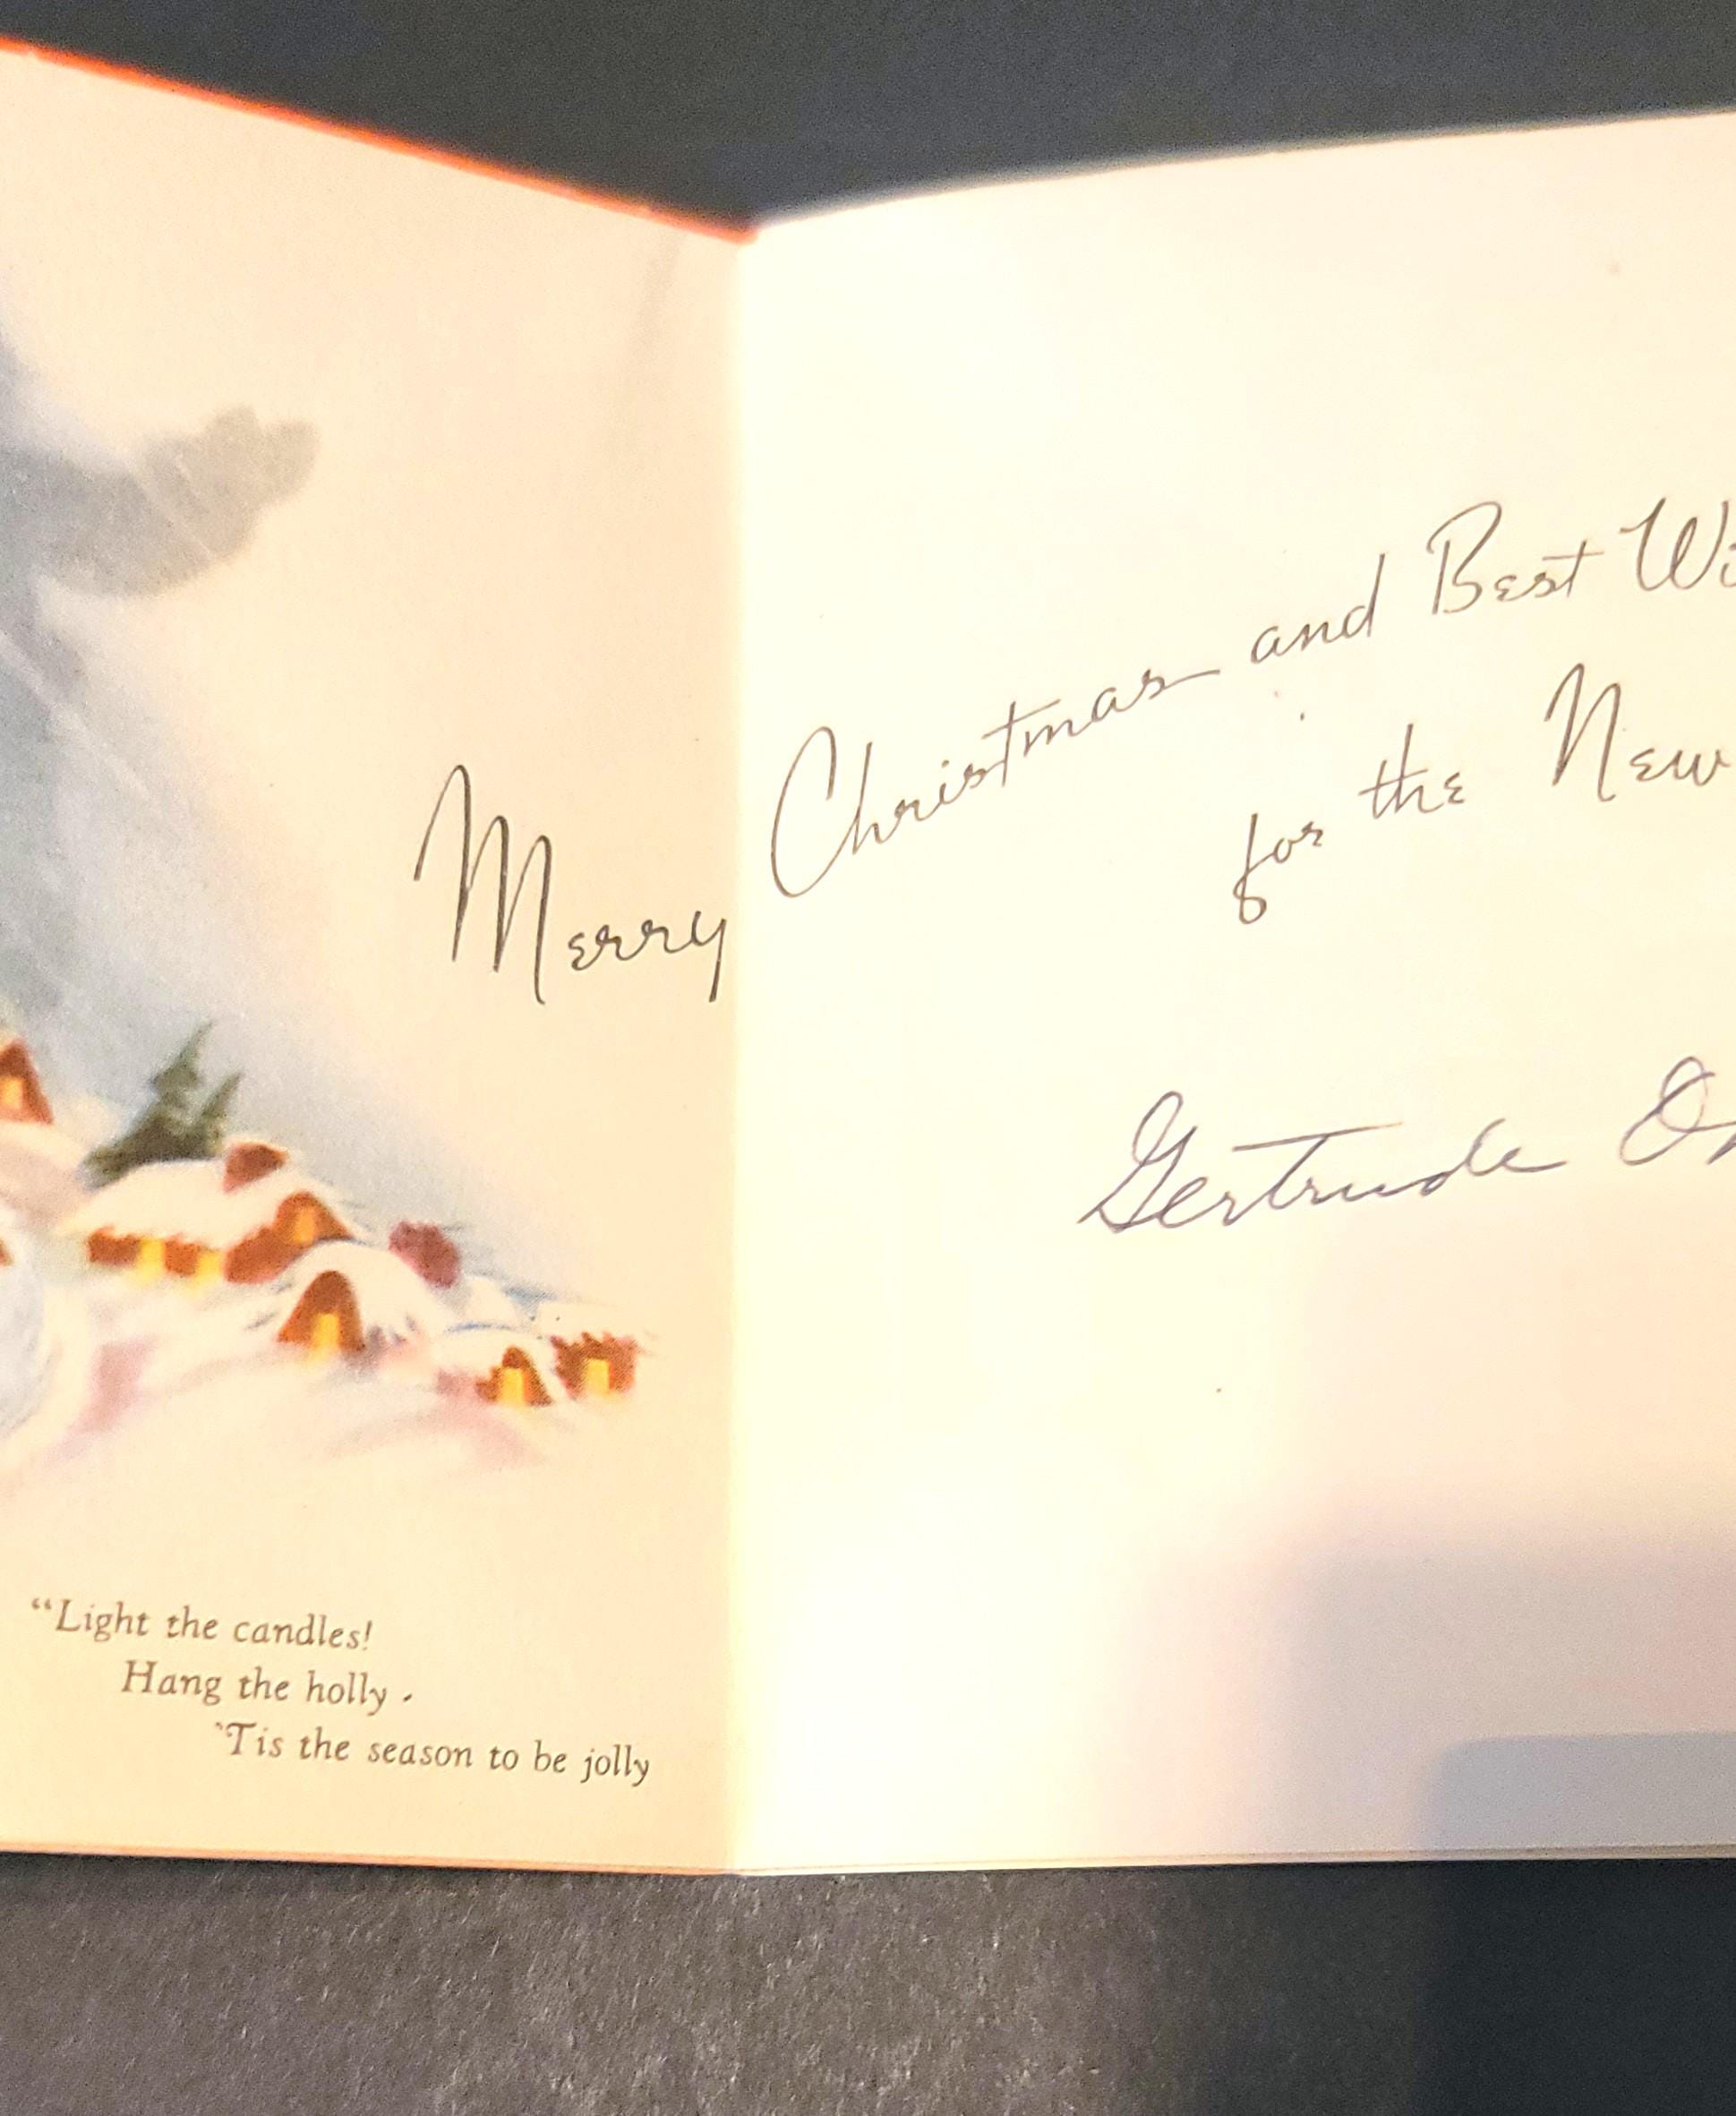 Merry Christmas and Best Wi
for the New
Gertrude O
"Light the candles!
Hang the holly -
'Tis the season to be jolly